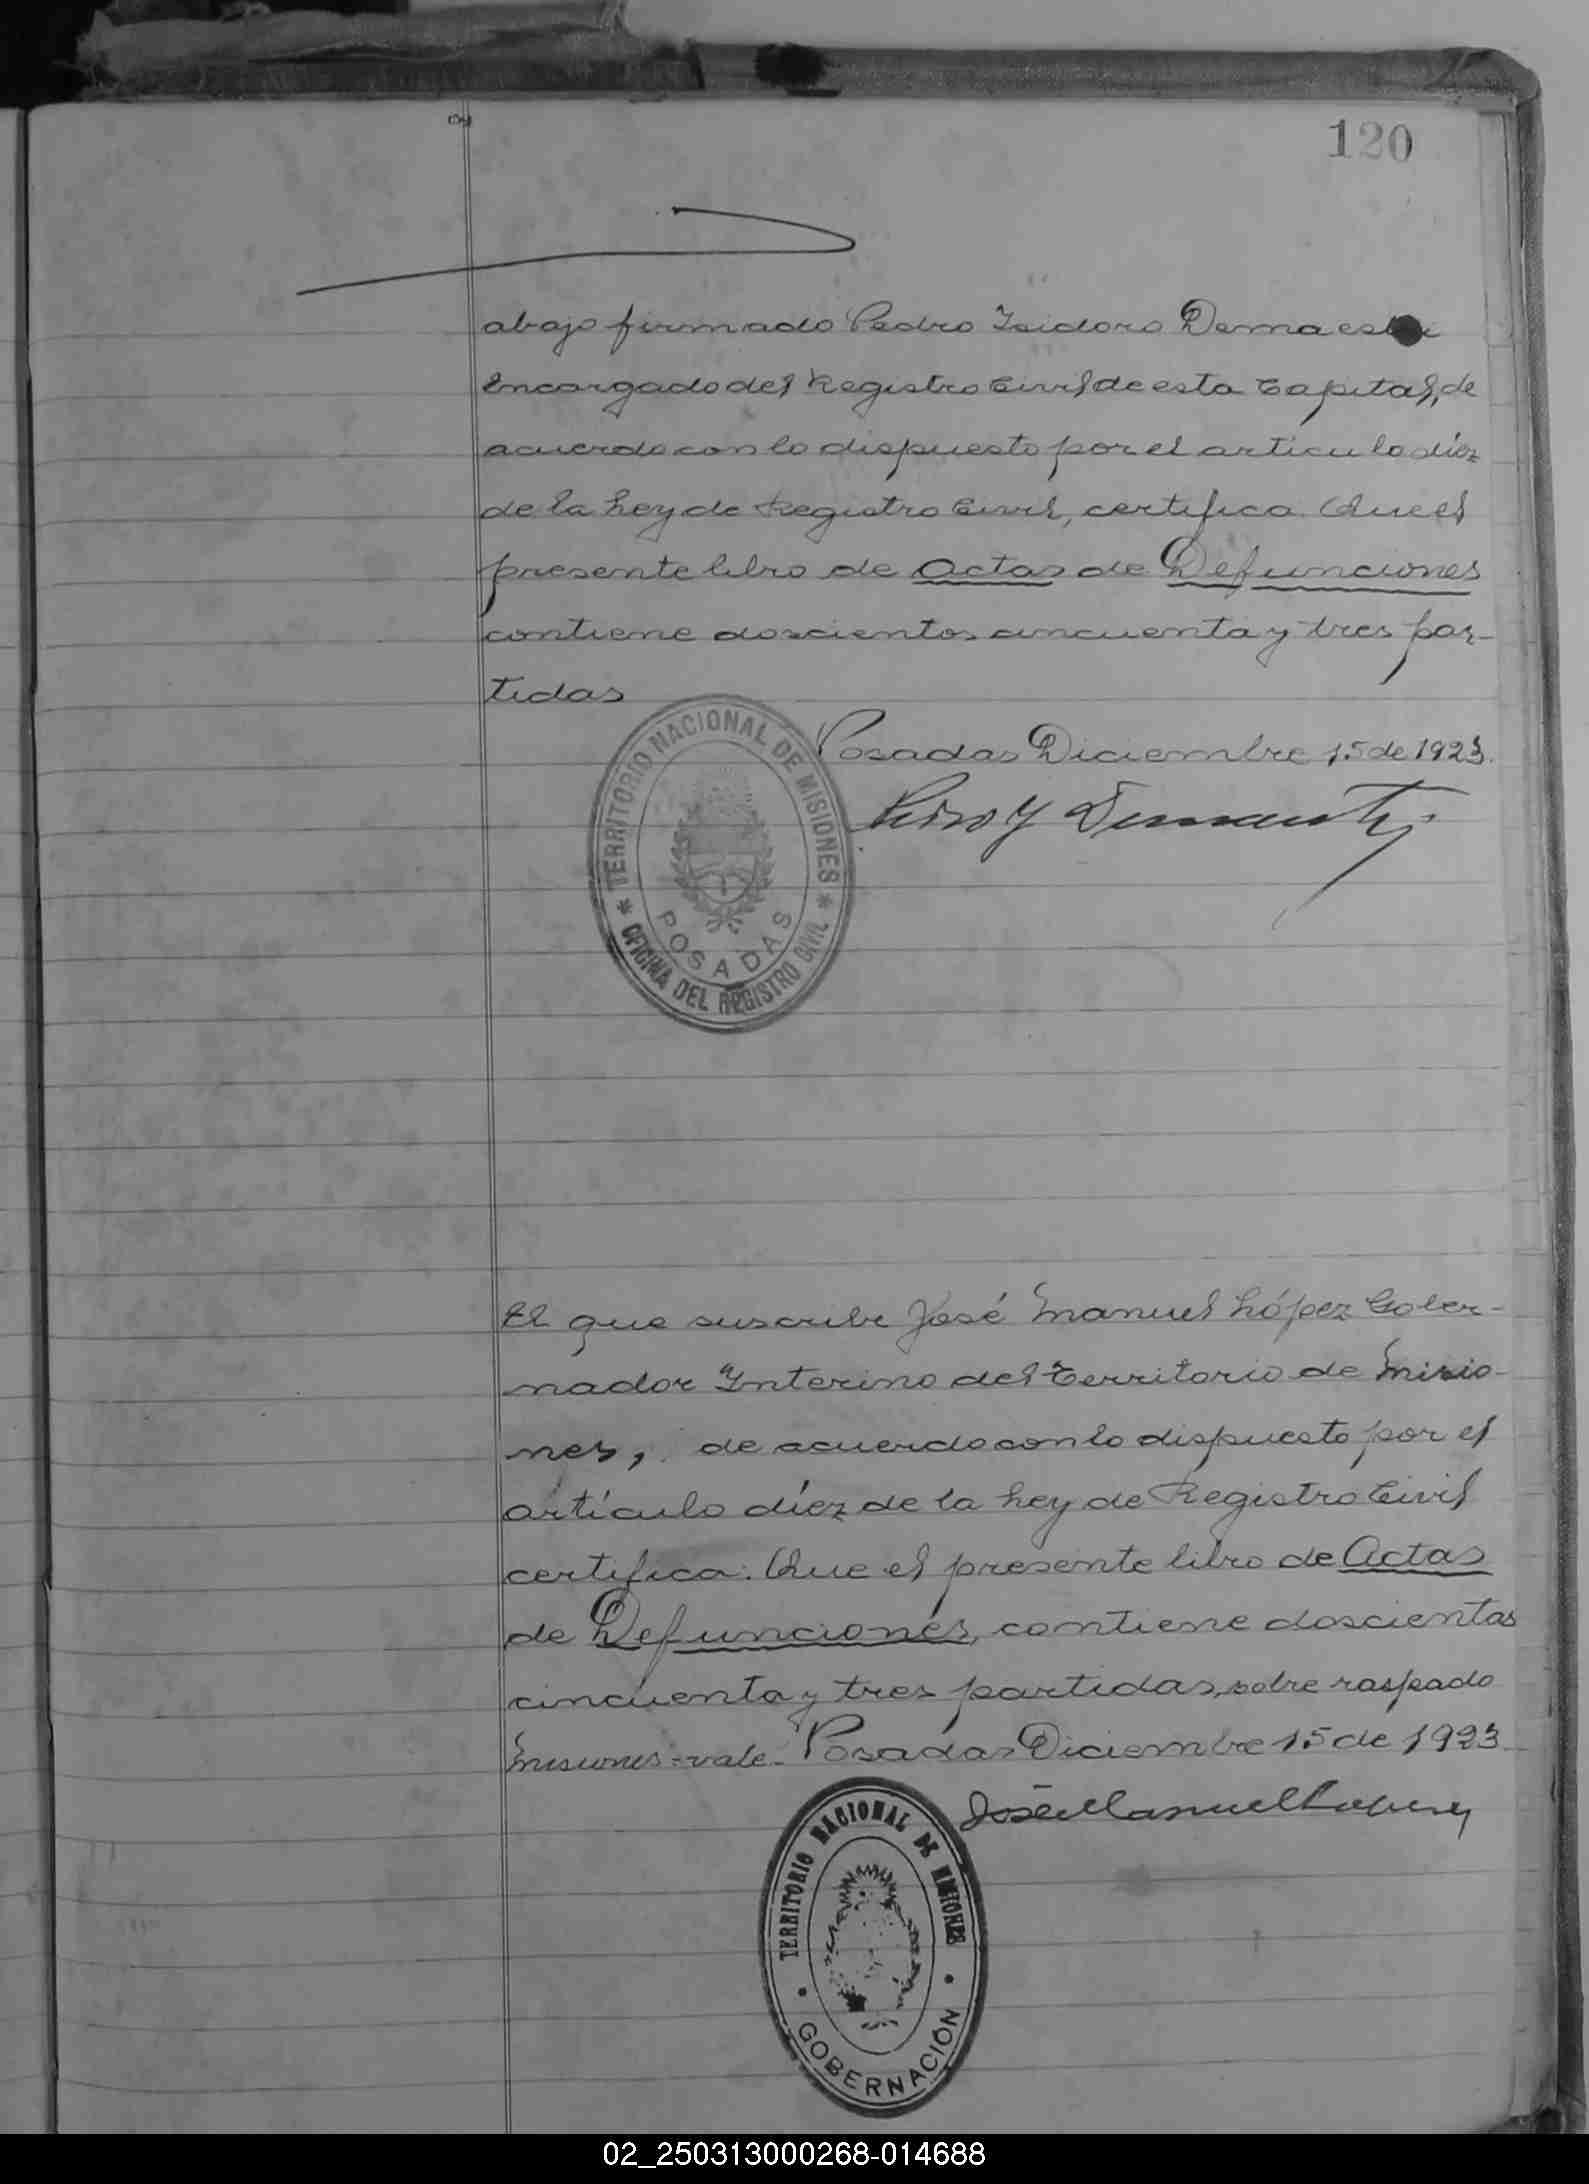 120
abajo firmado Pedro Isidoro Demaestri
encargado del Registro Civil de esta Capital, de
acuerdo con lo dispuesto por el articulo diez
de la Ley de Registro Civil, certifica. Que el
presente libro de Actas de Defunciones
contiene doscientos cincuenta y tres par-
tidas
Posadas Diciembre 15 de 1923.
TERRITORIO NACIONAL DE MISIONES
POSADAS
OFICINA DEL REGISTRO CIVIL
El que suscribe José Manuel López Gober-
nador Interino del Territorio de Misio-
nes, de acuerdo con lo dispuesto por el
artículo díez de la Ley de Registro Civil
certifica: Que el presente libro de Actas
de Defunciones, contiene doscientas
cincuenta y tres partidas, sobre raspado
Misiones = vale - Posadas Diciembre 15 de 1923
José Manuel Lopez
TERRITORIO NACIONAL DE MISIONES
GOBERNACIÓN
02_250313000268-014688